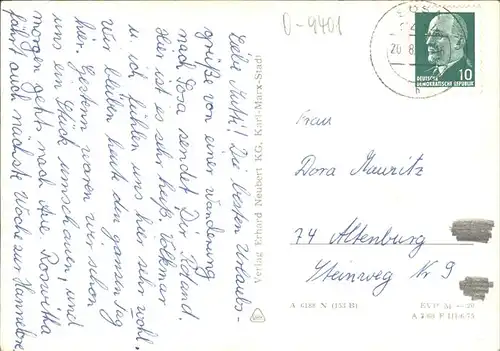 D-9401
SOSA
20.8.
DEUTSCHE
DEMOKRATISCHE REPUBLIK 10
Liebe Mutti! Die besten Urlaubs-
grüße von einer Wanderung
nach Sosa sendet Dir Roland.
Hier ist es sehr heiß. Volkmar
u. ich fühlen uns hier sehr wohl.
Wir bleiben heute den ganzen Tag
hier. Gestern waren wir schon
uns ein Stück umschauen, und
morgen geht's nach Aue. Roswitha
fährt auch nächste Woche zur
Verlag Erhard Neubert KG, Karl-Marx-Stadt
Frau
Dora Mauritz
74 Altenburg
Steinweg Nr 9
A 6188 N (153 B)
EVP M -,20